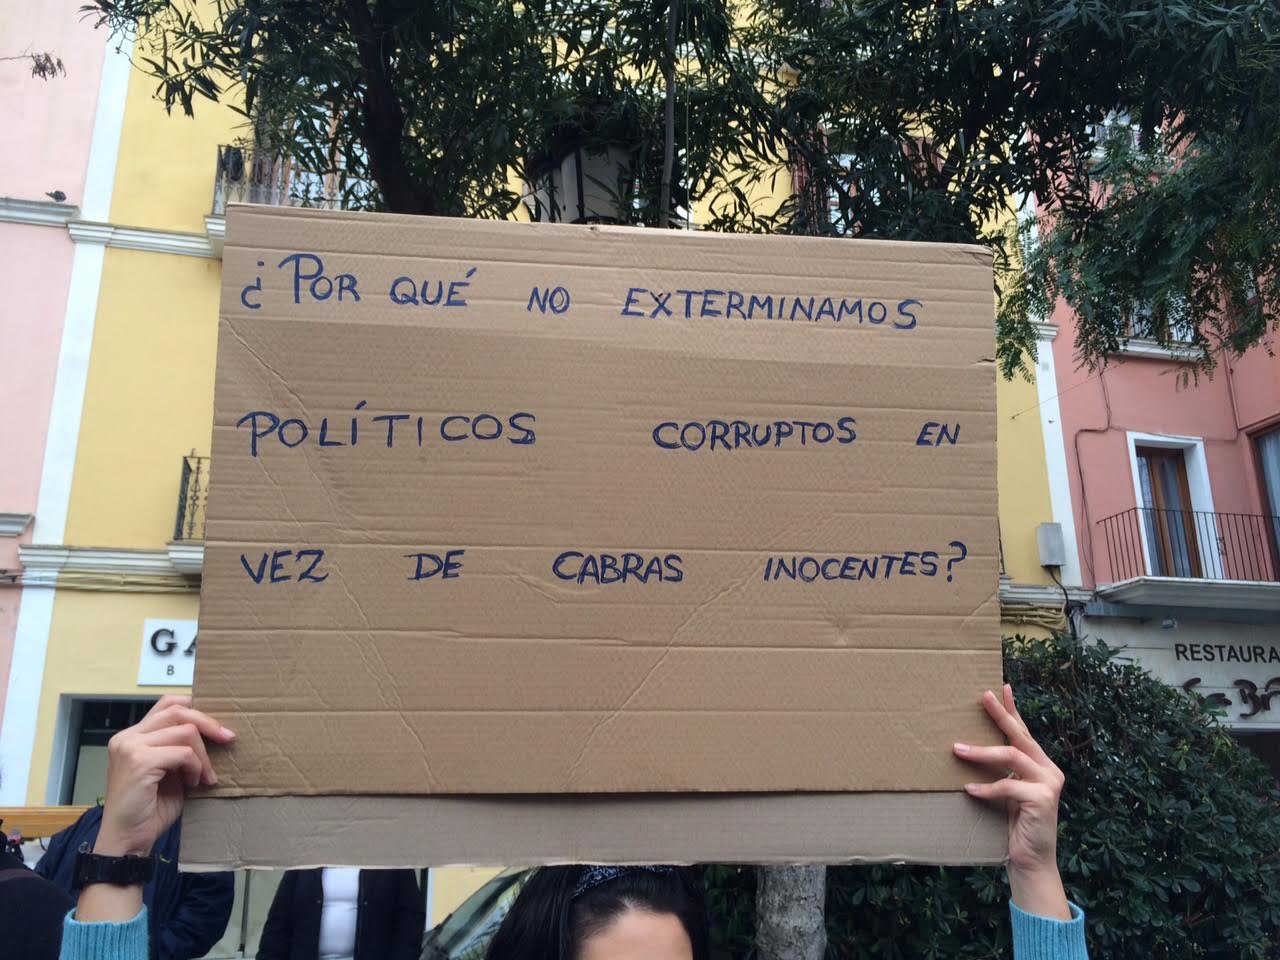 ¿POR QUÉ NO EXTERMINAMOS
POLÍTICOS CORRUPTOS EN
VEZ DE CABRAS INOCENTES?
GA
B
RESTAURA